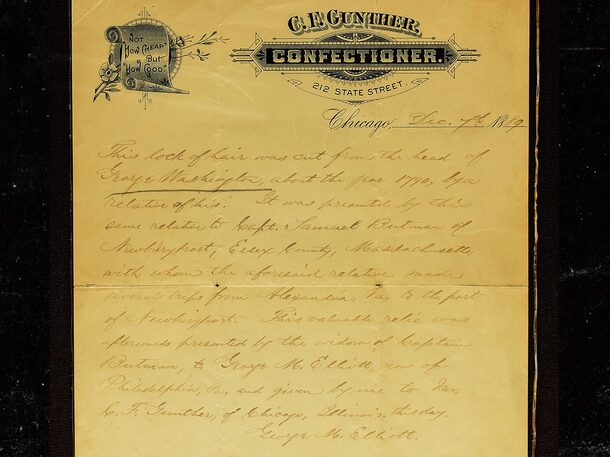 "NOT
HOW CHEAP
BUT
HOW GOOD"
C. F. GUNTHER,
CONFECTIONER.
212 STATE STREET.
Chicago, Dec. 7th 1889
This lock of hair was cut from the head of
George Washington, about the year 1790, by a
relative of his. It was presented by this
same relative to Capt. Samuel Butman of
Newburyport, Essex County, Massachusetts,
with whom the aforesaid relative made
several trips from Alexandria, Va. to the port
of Newburyport. This valuable relic was
afterwards presented by the widow of Captain
Butman, to George M. Elliott, now of
Philadelphia, and given by me to
C. F. Gunther, of Chicago, Illinois, this day.
George M. Elliott.